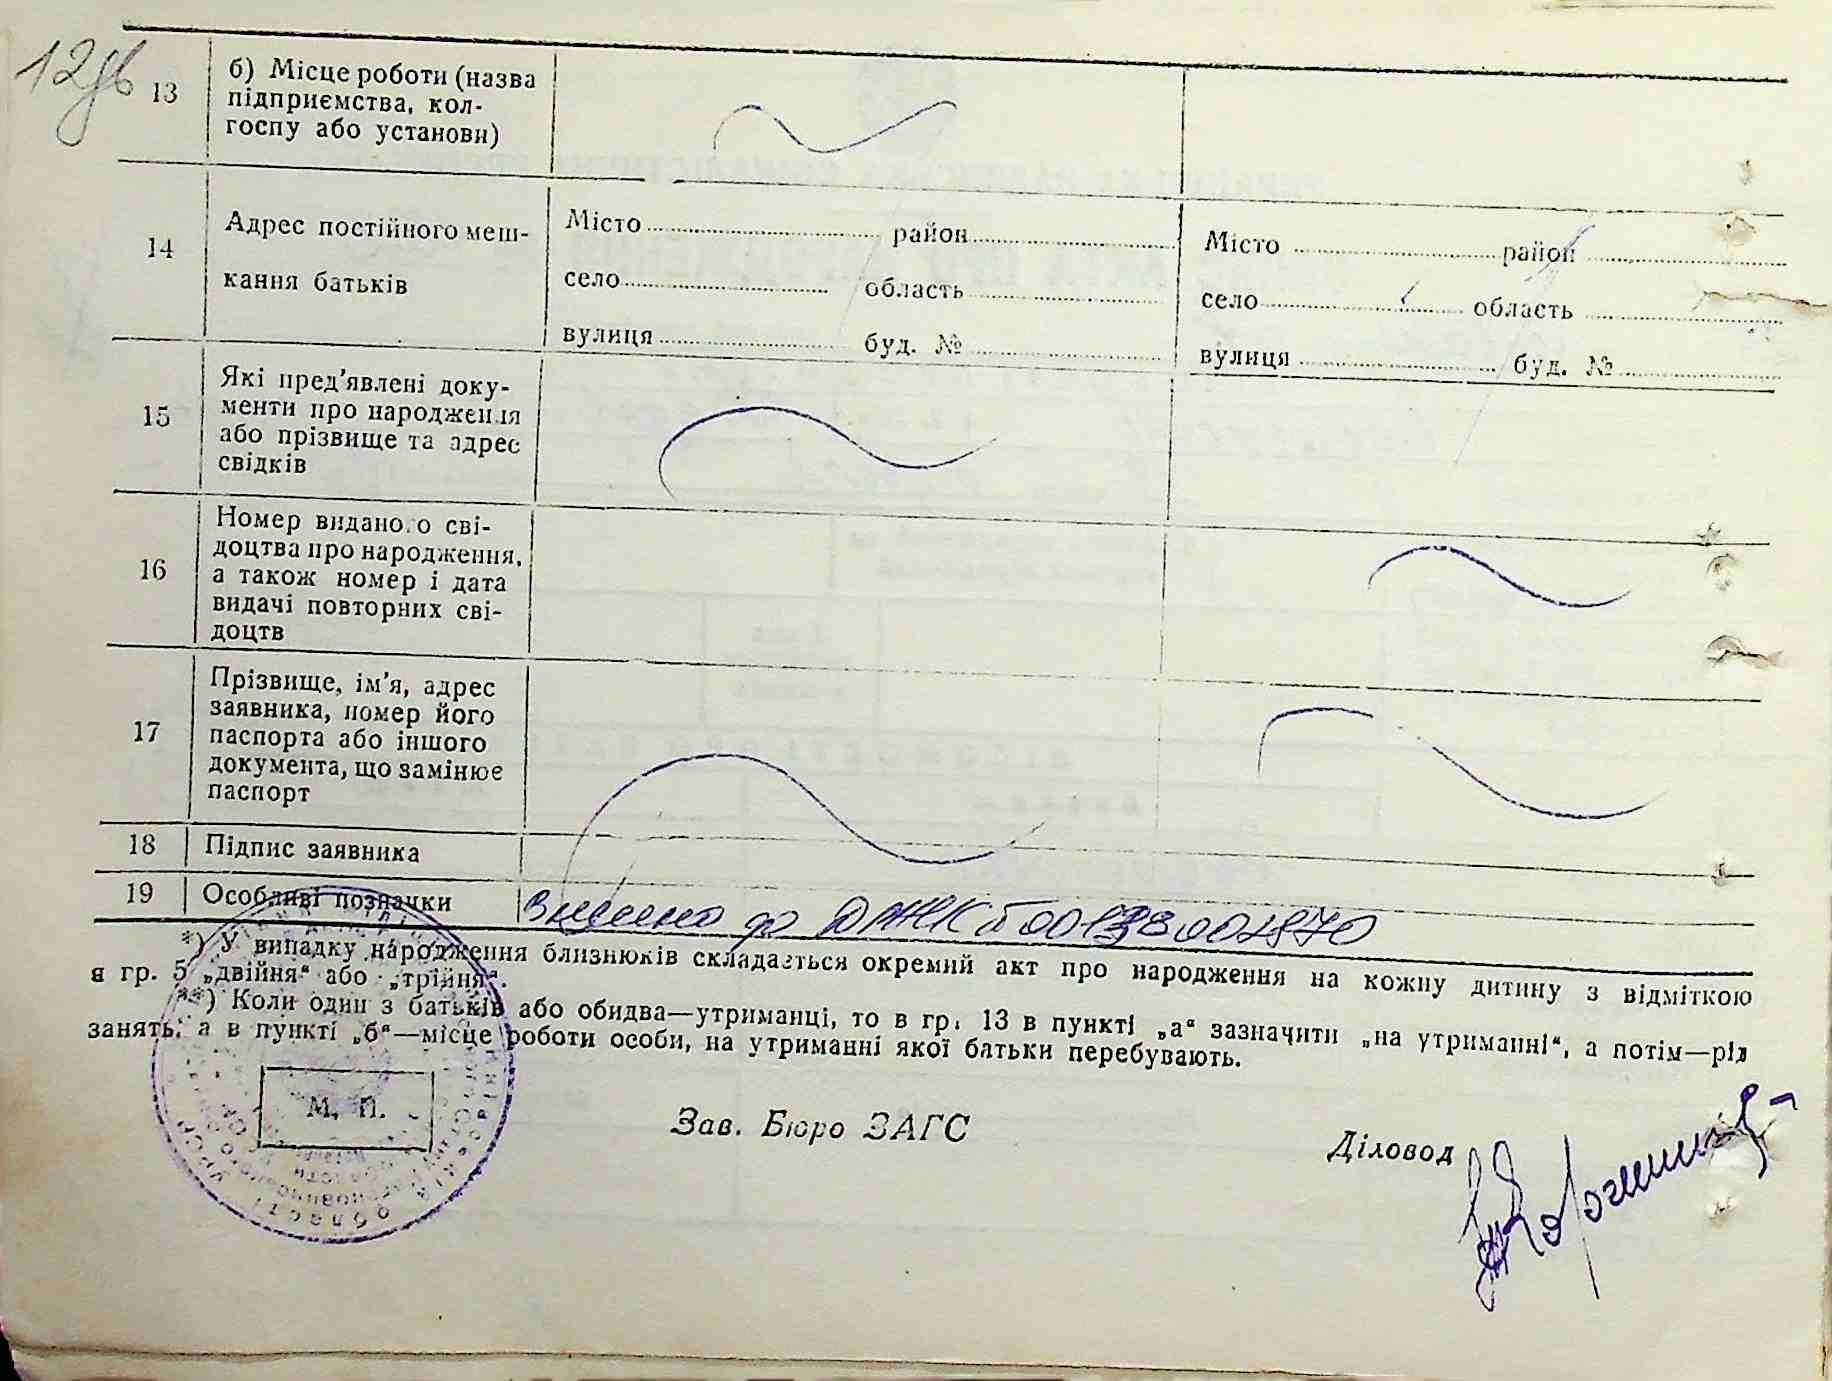 12зв
13
б) Місце роботи (назва
підприємства, кол-
госпу або установи)
14
Адрес постійного меш-
кання батьків
Місто район
село область
вулиця буд. №
Місто район
село область
вулиця буд. №
15
Які пред'явлені доку-
менти про народження
або прізвище та адрес
свідків
16
Номер виданого сві-
доцтва про народження,
а також номер і дата
видачі повторних сві-
доцтв
17
Прізвище, ім'я, адрес
заявника, номер його
паспорта або іншого
документа, що замінює
паспорт
18 Підпис заявника
19 Особливі позначки
*) У випадку народження близнюків складається окремий акт про народження на кожну дитину з відміткою
в гр. 5 „двійня“ або „трійня“.
**) Коли один з батьків або обидва—утриманці, то в гр. 13 в пункті „а“ зазначити „на утриманні“, а потім—рід
занять, а в пункті „б“—місце роботи особи, на утриманні якої батьки перебувають.
М. П.
Зав. Бюро ЗАГС
Діловод